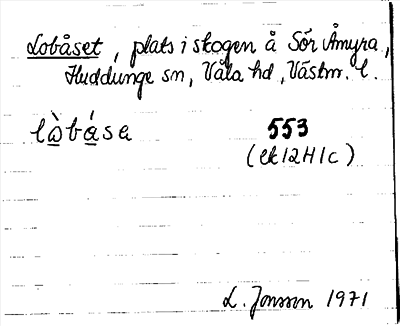 Lobåset, plats i skogen å Sör Åmyra,
Huddunge sn, Våla hd, Västm. l.
lòbása 553
(ek 12H1c)
L. Jonsson 1971